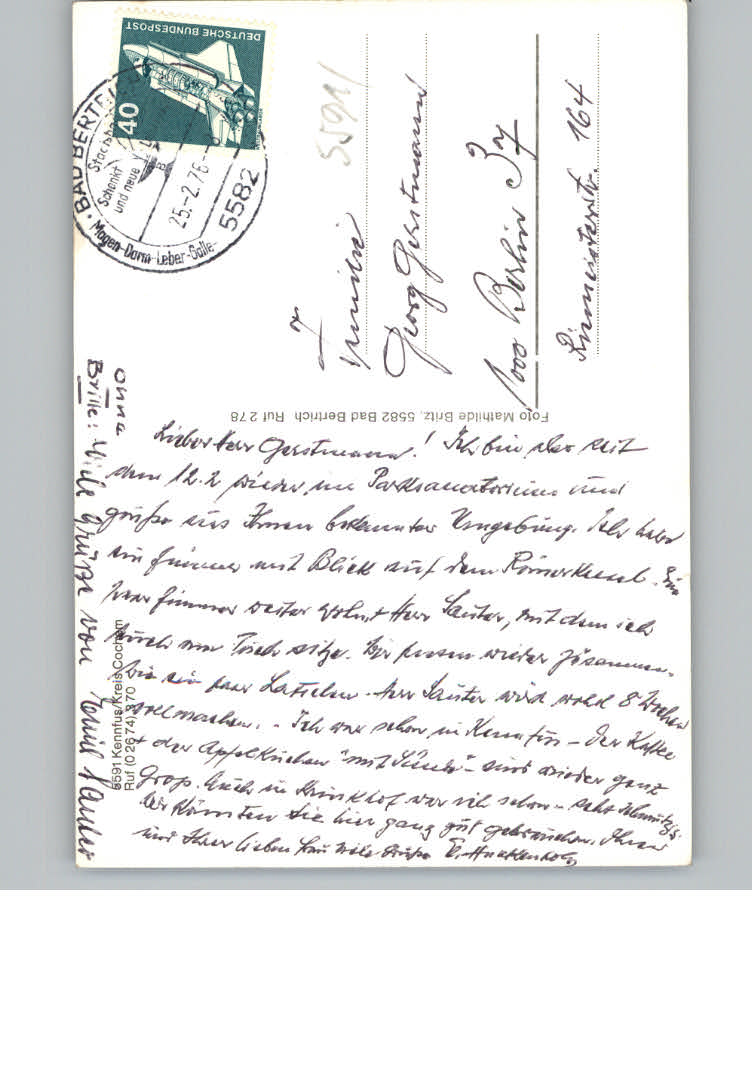 DEUTSCHE BUNDESPOST
40
BAD BERTRICH
Schenkt
und neue
25.-2.76-
5582
Magen-Darm-Leber-Galle-
5591
Familie
Georg Gerstmann
1000 Berlin 37
164
Foto Mathilde Britz, 5582 Bad Bertrich Ruf 2 78
5591 Kennfus/Kreis Cochem
Ruf (0 26 74) 3 70
Lieber Herr Gerstmann! Ich bin seit
dem 12.2 wieder im Parksanatorium und
grüße aus Ihnen bekannter Umgebung. Ich habe
ein Zimmer mit Blick auf den Römerkessel. Ein
paar Zimmer weiter wohnt Herr Sauter, mit dem ich
auch am Tisch sitze. Wir passen wieder zusammen
wie ein paar Latschen. Herr Sauter wird wohl 8 Wochen
vollmachen. - Ich war schon in Kennfus - Der Kaffee
+ der Apfelkuchen "mit " sind wieder ganz
groß. Auch im war ich schon -
Wir könnten Sie hier ganz gut gebrauchen. Ihnen
und Ihrer lieben Frau viele Grüße
Ohne
Brille: Viele Grüße von Emil Sauter